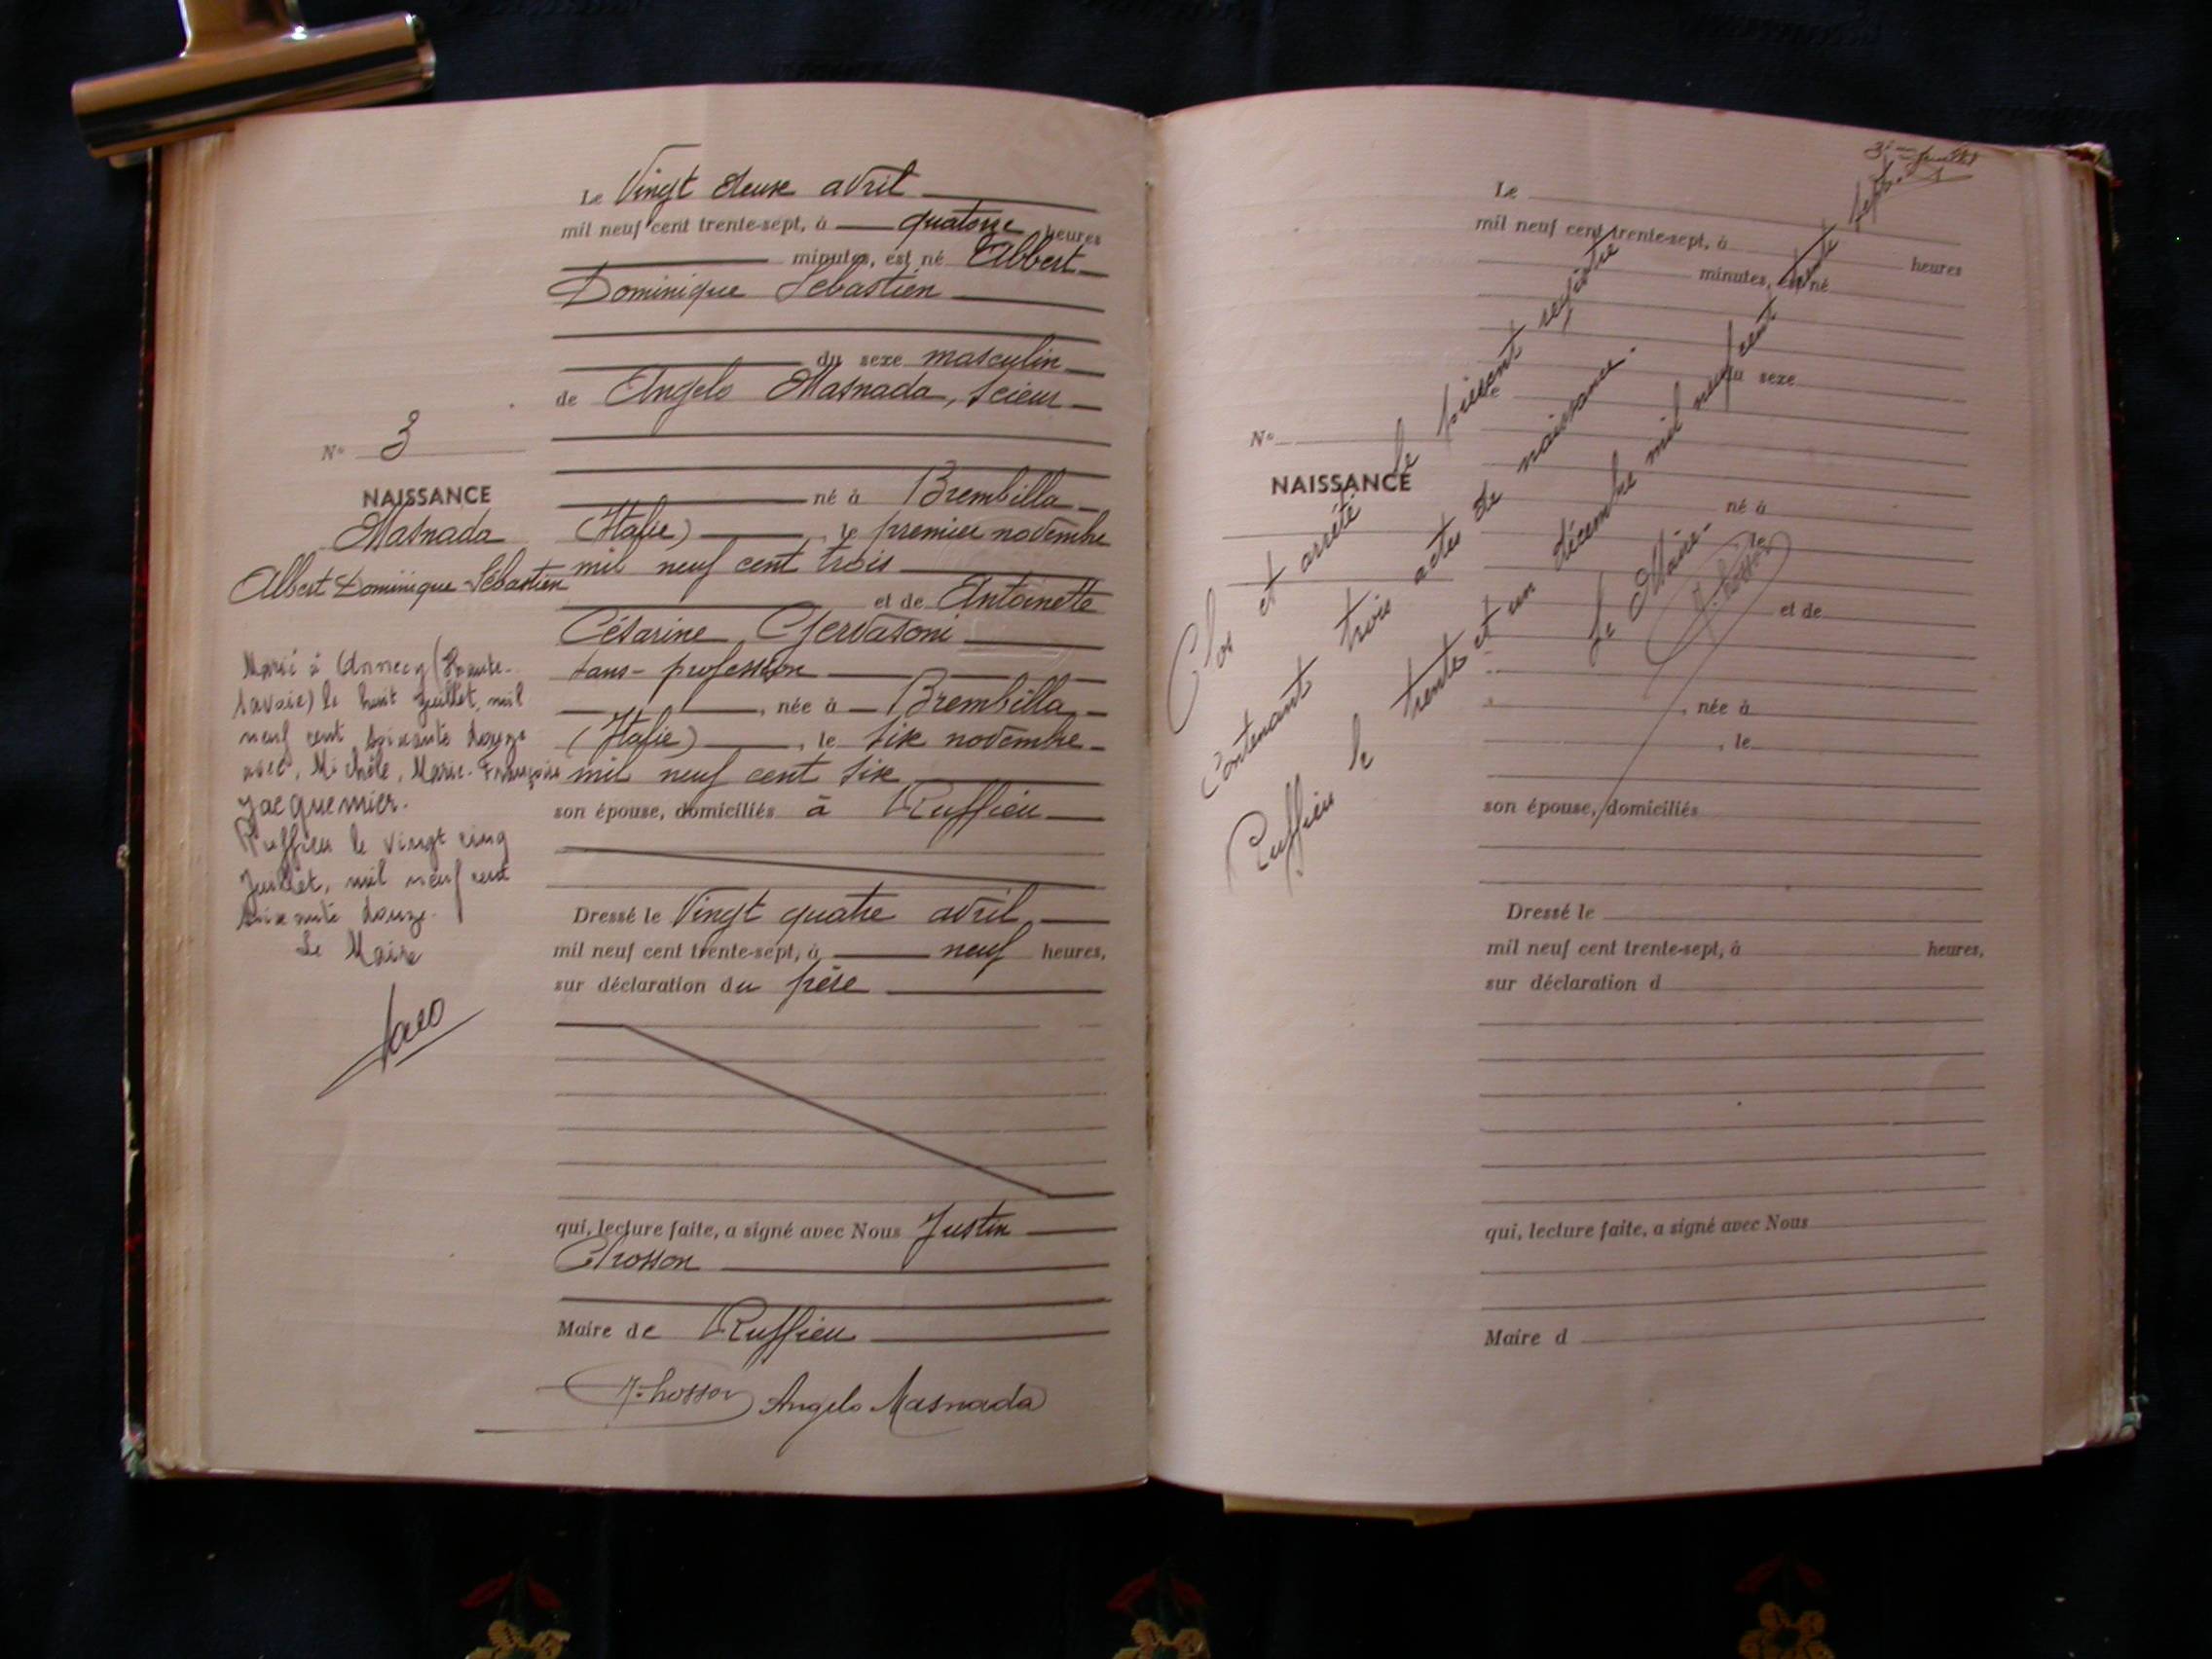 Le Vingt deux avril
mil neuf cent trente-sept, à quatorze heures
minutes, est né Albert
Dominique Sébastien
du sexe masculin
de Angelo Masnada, scieur
né à Brembilla
(Italie), le premier novembre
mil neuf cent trois
et de Antoinette
Césarine Gervasoni
sans profession
, née à Brembilla
(Italie), le six novembre
mil neuf cent six
son épouse, domiciliés à Ruffieu
Dressé le Vingt quatre avril
mil neuf cent trente-sept, à neuf heures,
sur déclaration du père
qui, lecture faite, a signé avec Nous Justin
Chosson
Maire de Ruffieu
J. Chosson Angelo Masnada
N° 3
NAISSANCE
Masnada
Albert Dominique Sébastien
Marié à Annecy (Haute-
Savoie) le huit Juillet, mil
neuf cent soixante douze
avec, Michèle, Marie-Françoise
Jacquemier.
Ruffieu le vingt cinq
Juillet, mil neuf cent
soixante douze.
Le Maire
3e feuillet
Le
mil neuf cent trente-sept, à heures
minutes, est né
du sexe
de
N°
NAISSANCE
né à
, le
et de
, née à
, le
son épouse, domiciliés
Dressé le
mil neuf cent trente-sept, à heures,
sur déclaration d
qui, lecture faite, a signé avec Nous
Maire d
Clos et arrêté le présent registre
Contenant trois actes de naissance.
Ruffieu le trente et un décembre mil neuf cent trente sept.
Le Maire.
J. Chosson